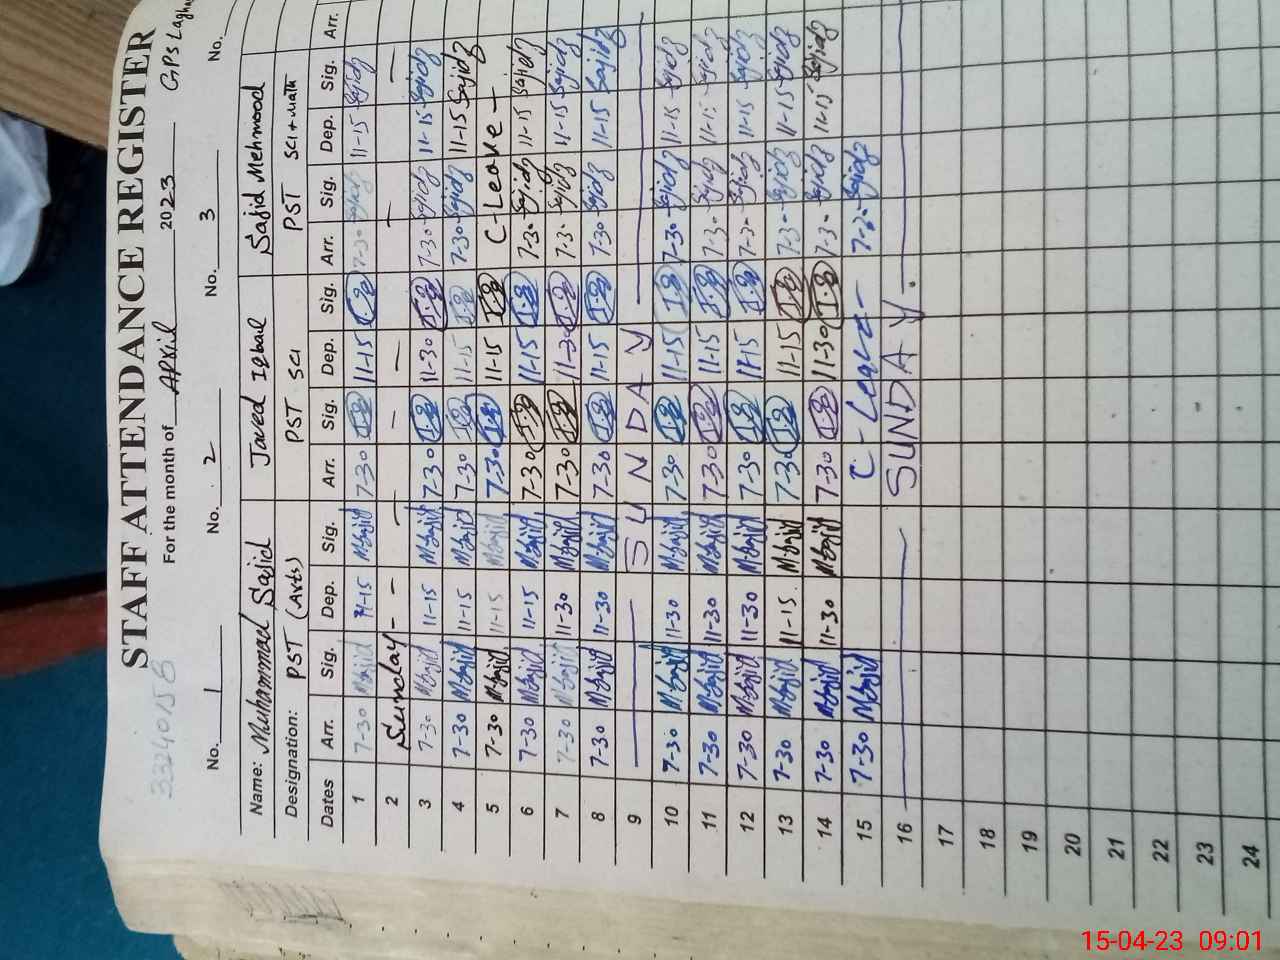 33240158
STAFF ATTENDANCE REGISTER
For the month of APRil 2023 GPS
No. 1 No. 2 No. 3 No.
Name: Muhammad Sajid Javed Iqbal Sajid Mehmood
Designation: PST (Arts) PST SCI PST SCI+Math
Dates Arr. Sig. Dep. Sig. Arr. Sig. Dep. Sig. Arr. Sig. Dep. Sig. Arr.
1 7-30 M.Sajid 11-15 M.Sajid 7-30 11-15 7-30 Sajid 11-15 Sajid
2 Sunday - - - - - - -
3 7-30 M.Sajid 11-15 M.Sajid 7-30 11-30 7-30 Sajid 11-15 Sajid
4 7-30 M.Sajid 11-15 M.Sajid 7-30 11-15 7-30 Sajid 11-15 Sajid
5 7-30 M.Sajid 11-15 M.Sajid 7-30 11-15 C-Leave-
6 7-30 M.Sajid 11-15 M.Sajid 7-30 11-15 7-30 Sajid 11-15 Sajid
7 7-30 M.Sajid 11-30 M.Sajid 7-30 11-30 7-30 Sajid 11-15 Sajid
8 7-30 M.Sajid 11-30 M.Sajid 7-30 11-15 7-30 Sajid 11-15 Sajid
9 SUNDAY
10 7-30 M.Sajid 11-30 M.Sajid 7-30 11-15 7-30 Sajid 11-15 Sajid
11 7-30 M.Sajid 11-30 M.Sajid 7-30 11-15 7-30 Sajid 11-15 Sajid
12 7-30 M.Sajid 11-30 M.Sajid 7-30 11-15 7-30 Sajid 11-15 Sajid
13 7-30 M.Sajid 11-15 M.Sajid 7-30 11-15 7-30 Sajid 11-15 Sajid
14 7-30 M.Sajid 11-30 M.Sajid 7-30 11-30 7-30 Sajid 11-15 Sajid
15 7-30 M.Sajid C-Leave- 7-30 Sajid
16 SUNDAY.
17
18
19
20
21
22
23
24
15-04-23 09:01